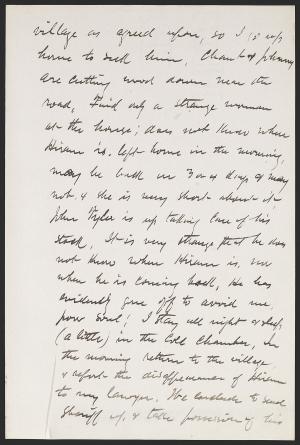 village as agreed upon, so I go up
home to seek him, Chant & Johnny
are cutting wood down near the
road, Find only a strange woman
at the house; does not know where
Hiram is, left home in the morning,
may be back in 3 or 4 days & may
not & she is very short about it
John Tyler is up taking care of his
stock, It is very strange that he does
not know where Hiram is, nor
when he is coming back, He has
evidently gone off to avoid me,
poor soul! I stay all night & sleep
(a little) in the Cold Chamber, In
the morning return to the village
& report the disappearance of Hiram
to my lawyer. We conclude to send
Sheriff up & take possession of his